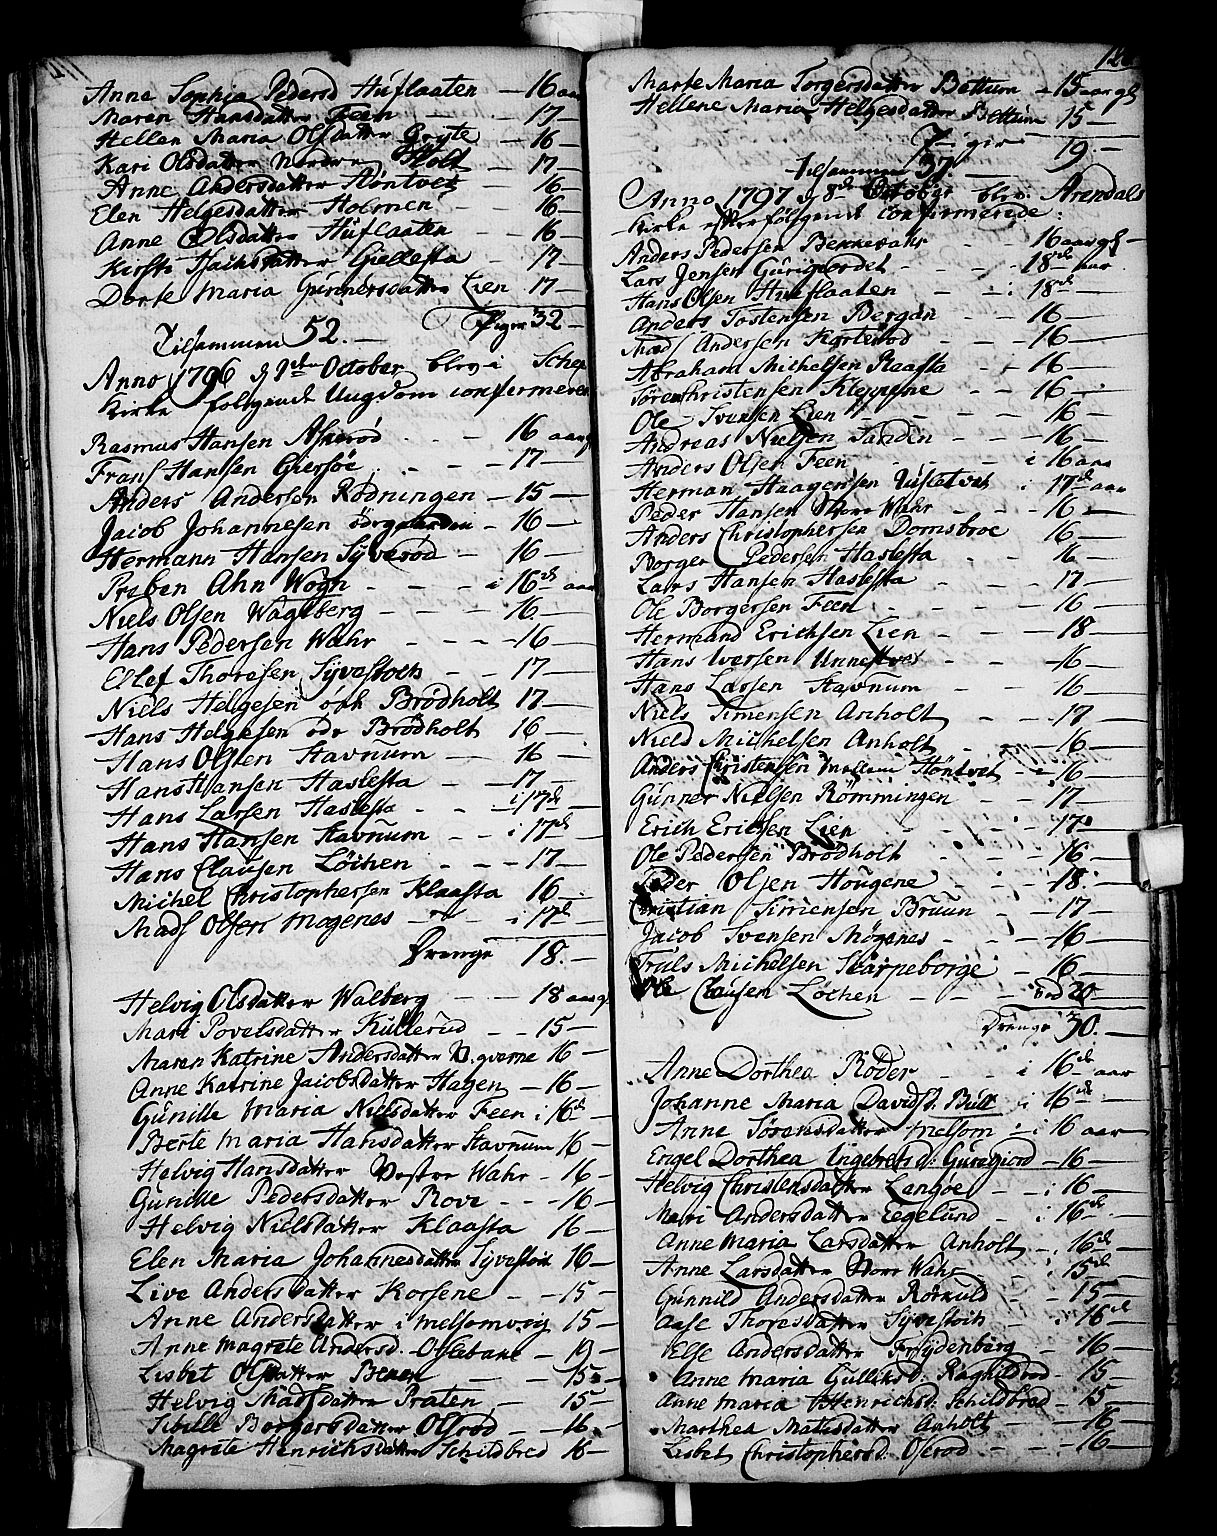 Anne Sophia Pedersd Huflaaten — 16 aar
Maren Hansdatter Feen — 17 —
Hellen Maria Olsdatter Gryte — 16 —
Kari Olsdatter Nordre Holt — 17 —
Anne Andersdatter Höntvet — 16 —
Elen Helgesdatter Holmen — 16 —
Anne Olsdatter Huflaaten — 16 —
Kirsti Isachsdatter Gullesta — 17 —
Dorte Maria Gunnersdatter Lien 17 —
Piger 32 —
Tilsammen 52. —
Anno 1796 d October blev i
Kirke følgende Ungdom confirmeret
Rasmus Hansen Askerød - - - 16 aar
Frans Hansen Giersöe - - - 17 —
Anders Andersen Rödningen — 15 —
Jacob Johannesen ödegaarden — 16 —
Hermann Hansen Syverød — 16 —
Preben Ahn Wogn - - - i 16de aar
Niels Olsen Waglberg — 16
Hans Pedersen Wahr - - - 16 —
Ellef Thoresen Syvestoch - - 17 —
Niels Helgesen öde Brödholt 17 —
Hans Helgesen öde Brödholt 16 —
Hans Olsen Stavnum — 16 —
Hans Hansen Haslesta — 17 —
Hans Larsen Haslesta - - i 17de
Hans Hansen Stavnum - - i 17de
Hans Clausen Löchen - - - 17 —
Michel Christophersen Klaasta 16 —
Mads Olsen Mogenes - - i 17de
Drenge 18. —
Helvig Olsdatter Walberg - - 18 aar
Mari Povelsdatter Kullerud - - 15 —
Maren Katrine Andersdatter 16 —
Anne Katrine Jacobsdatter Hagen — 16 —
Gunille Maria Nielsdatter Feen i 16de
Berte Maria Hansdatter Stavnum 16 —
Helvig Hansdatter Vestre Wahr - 16 —
Gunille Pedersdatter Rove - - 16 —
Helvig Nielsdatter Klaasta 16 —
Elen Maria Johannesdatter Syvestoch 16 —
Live Andersdatter Korsene - - 15 —
Anne Andersdatter i Melsomvig 15 —
Anne Magrete Andersd. Oslebake — 19 —
Lisbet Olsdatter — 15
Helvig Madsdatter Praten — 15 —
Sibille Borgersdatter Olsrød — 16
Magrete Henrichsdatter Schildbred 16 —
Marte Maria Torgersdatter Bettum — 15 aar gl
Hellene Maria Helgesdatter Bettum 15 —
Piger 19. —
Tilsammen 37 —
Anno 1797 d 8de October blev Arendals
Kirke efterfølgende confirmerede:
Anders Pedersen Bekkevahr - 16 aar gl —
Lars Jensen Gurigiordet - - - - 18de aar
Hans Olsen Huflaaten - - i 18de
Anders Tostensen Bergan - - 16 —
Mads Andersen — 16 —
Abraham Michelsen Raasta — 16 —
Sören Christensen Kleppene — 16 —
Ole Svensen Lien - - - 16 —
Andreas Nielsen Sanden - - - 16 —
Anders Olsen Feen - - - i 16 aar
Herman Haagensen Ullsetvet i 17de aar
Peder Hansen Norr Wahr - - 16 —
Anders Christophersen Domsbroe 16 —
Borger Pedersen Haslesta - - 16 —
Lars Hansen Haslesta - - 17 —
Ole Borgersen Feen - - - 16 —
Hermand Erichsen Lien - - - 18 —
Hans Iversen Unnestvet - - - 16 —
Hans Larsen Stavnum - - 16 —
Niels Simensen Anholt - - 17 —
Niels Michelsen Anholt - - 16 —
Anders Christensen Mellem Höntvet - - 16 —
Gunner Nielsen Römmingen - - 17 —
Erich Erichsen Lien - - - 17
Ole Pedersen Brödholt - - 16 —
Peder Olsen Hougene - - 18. —
Christian Simensen Bruun - - 17 —
Jacob Svensen Mogenes - - - 16 —
Truls Michelsen Skarpeborge - 16 —
Ole Clausen Löchen - - - 20 —
Drenge 30. —
Anne Dorthea Röder - - i 16de aar
Johanne Maria Davidsd: Bull i 16de
Anne Sörensdatter Melsom - i 16 aar
Engel Dorthea Ingebretsd: Gurigiord — 16 —
Helvig Christensdatter Langöe - - i 16 —
Mari Andersdatter Eegelund - i 16de
Anne Maria Larsdatter Anholt - - 16de
Anne Larsdatter Norr Wahr - i 15de
Gunnild Andersdatter - - 15 —
Aase Thoresdatter Syvestoch - i 16de
Else Andersdatter Frydenberg - 16 —
Anne Maria Gulliksd: Ragnildrød - 15 —
Anne Maria Henrichsd: Schildbred — 15 —
Marthea Matisdatter Aaholt - 16 —
Lisbet Christophersd: Olsrød - - - 16 —